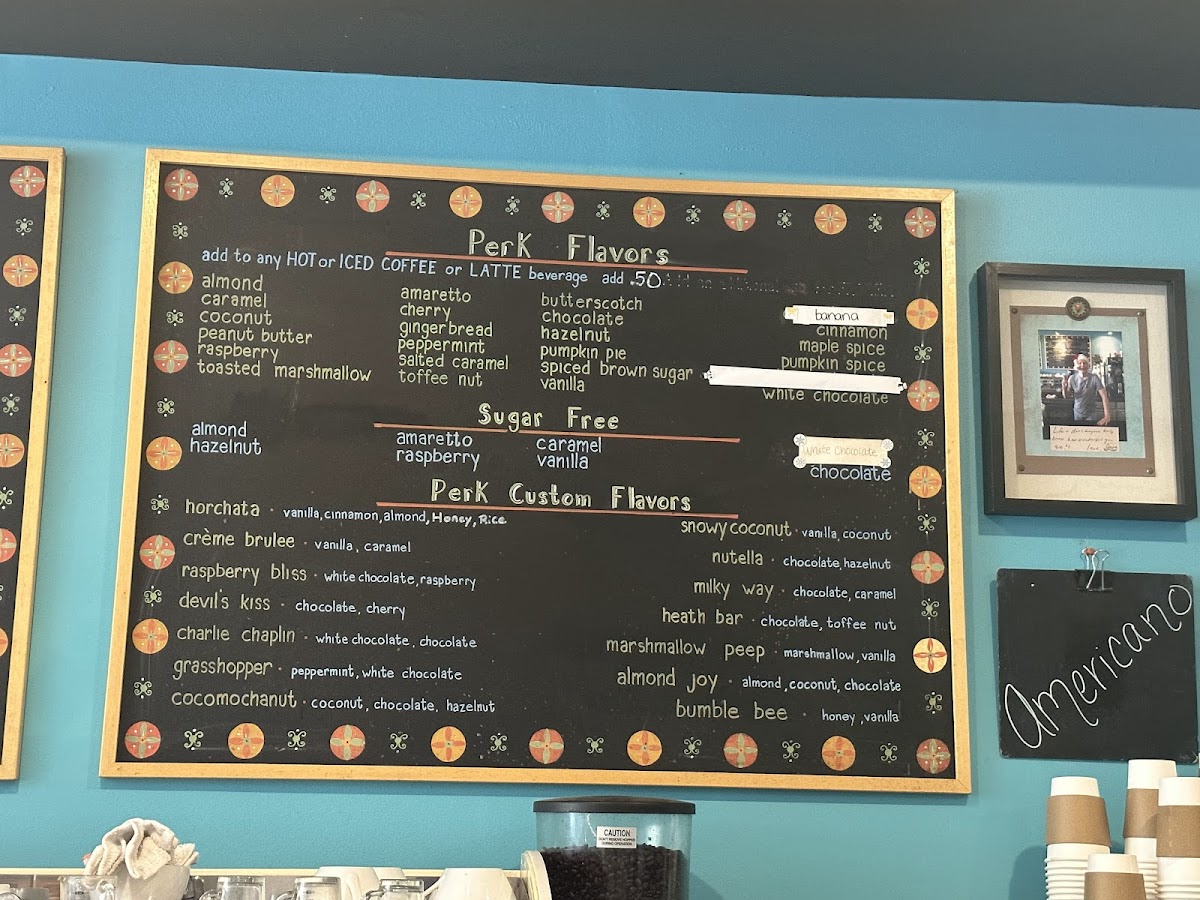 Perk Flavors
add to any HOT or ICED COFFEE or LATTE beverage add .50
almond
caramel
coconut
peanut butter
raspberry
toasted marshmallow
amaretto
cherry
gingerbread
peppermint
salted caramel
toffee nut
butterscotch
chocolate
hazelnut
pumpkin pie
spiced brown sugar
vanilla
banana
cinnamon
maple spice
pumpkin spice
white chocolate
Sugar Free
almond
hazelnut
amaretto
raspberry
caramel
vanilla
White Chocolate
chocolate
Perk Custom Flavors
horchata · vanilla, cinnamon, almond, Honey, Rice
crème brulee · vanilla, caramel
raspberry bliss · white chocolate, raspberry
devil's kiss · chocolate, cherry
charlie chaplin · white chocolate, chocolate
grasshopper · peppermint, white chocolate
cocomochanut · coconut, chocolate, hazelnut
snowy coconut · vanilla, coconut
nutella · chocolate, hazelnut
milky way · chocolate, caramel
heath bar · chocolate, toffee nut
marshmallow peep · marshmallow, vanilla
almond joy · almond, coconut, chocolate
bumble bee · honey, vanilla
Americano
CAUTION